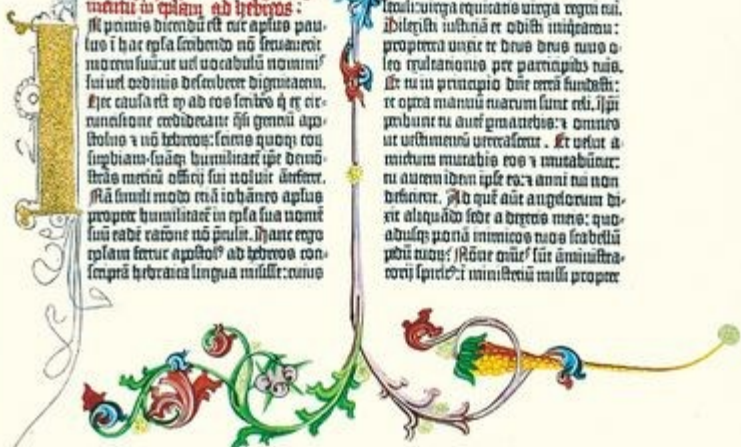 mentū in epl̄am ad hebreos:
N primis dicendū est cur apl̄us pau-
lus ī hac epl̄a scribendo nō seruauerit
morem suū: ut uel uocabulū nominis
sui uel ordinis describeret dignitatem.
Hec causa est ꝙ ad eos scribēs q̄ ex cir-
cuncisione crediderant q̄si gentiū apo-
stolus ⁊ nō hebreoꝝ: sciens quoqꝫ eoꝝ
supbiam-suāqꝫ humilitatē ip̄e demō-
strās meritū officij sui noluit āteferre.
Nā simili modo etiā iohānes apl̄us
propter humilitatē in epl̄a sua nomē
suū eadē ratōne nō p̄tulit. Hanc ergo
epl̄am fertur apostolꝰ ad hebreos con-
scriptā hebraica lingua misisse: cuius
seculi: uirga equitatis uirga regni tui.
Dilexisti iusticiā et odisti iniqtatem:
propterea unxit te deus deus tuus o-
leo exultationis pre participibꝫ tuis.
Et tu in principio dn̄e terrā fundasti:
et opera manuū tuarum sunt celi. Ip̄i
peribunt tu autē ꝑmanebis: ⁊ omnes
ut uestimentū ueterascent. Et uelut a-
mictum mutabis eos ⁊ mutabūtur:
tu autem idem ip̄se es: ⁊ anni tui non
deficient. Ad quē aūt angelorum di-
xit aliquādo sede a dextris meis: quo-
adusqꝫ ponā inimicos tuos scabellū
pedū tuoꝝ? Nōne om̄es sūt āministra-
torij spirit9: ī ministeriū missi propter